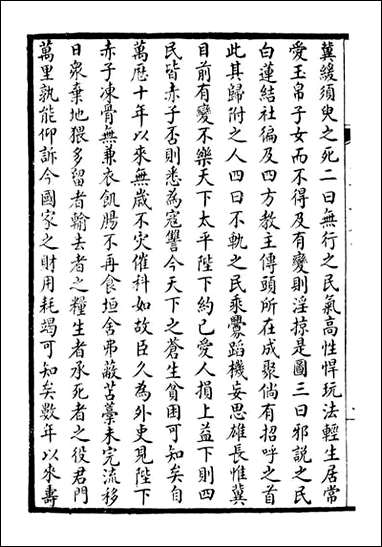 冀緩須臾之死二曰無行之民氣高性悍玩法輕生居常
愛玉帛子女而不得及有變則淫掠是圖三曰邪說之民
白蓮結社徧及四方教主傳頭所在成聚倘有招呼之首
此其歸附之人四曰不軌之民乘釁蹈機妄思雄長惟冀
目前有變不樂天下太平陛下約己愛人損上益下則四
民皆赤子否則悉為寇讐今天下之蒼生貧困可知矣自
萬厯十年以來無歲不災催科如故臣久為外吏見陛下
赤子凍骨無兼衣飢腸不再食垣舍弗蔽苫藁未完流移
日衆棄地猥多留者輸去者之糧生者承死者之役君門
萬里孰能仰訴今國家之財用耗竭可知矣數年以來壽